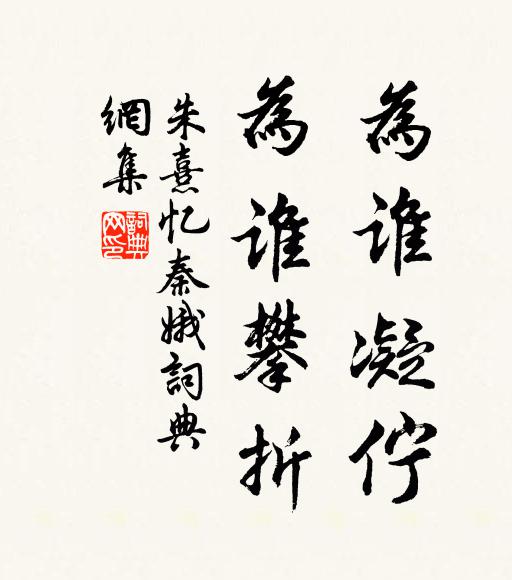 為誰凝佇
為誰攀折
朱熹忆秦娥詞典
網集
詞典
网印